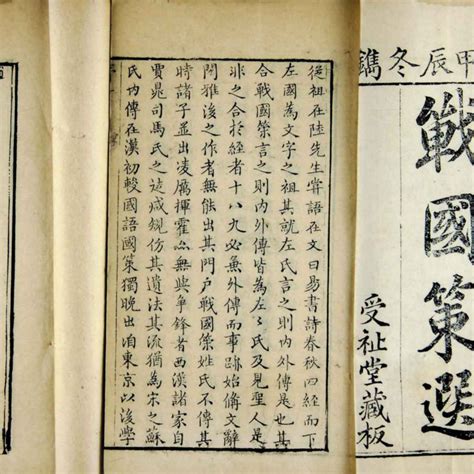 甲辰冬鐫
戰國策選
受祉堂藏板
從祖在陸先生嘗語在文曰易書詩春秋四經而下
左國為文字之祖其就左氏言之則内外傳是
合戰國策言之則内外傳皆為左〻氏及見聖人是
非之合於經者十八九必兼外傳而事跡始偹文辭
閎雅後之作者無能出其門戶戰國策姓氏不傳
時諸子並出凌厲揮霍無與爭鋒者西漢諸家自
賈晁司馬氏之徒咸規仿其遺法其流猶為宋之蘇
氏内傳在漢初較國語國策獨晚出洎東京以後學